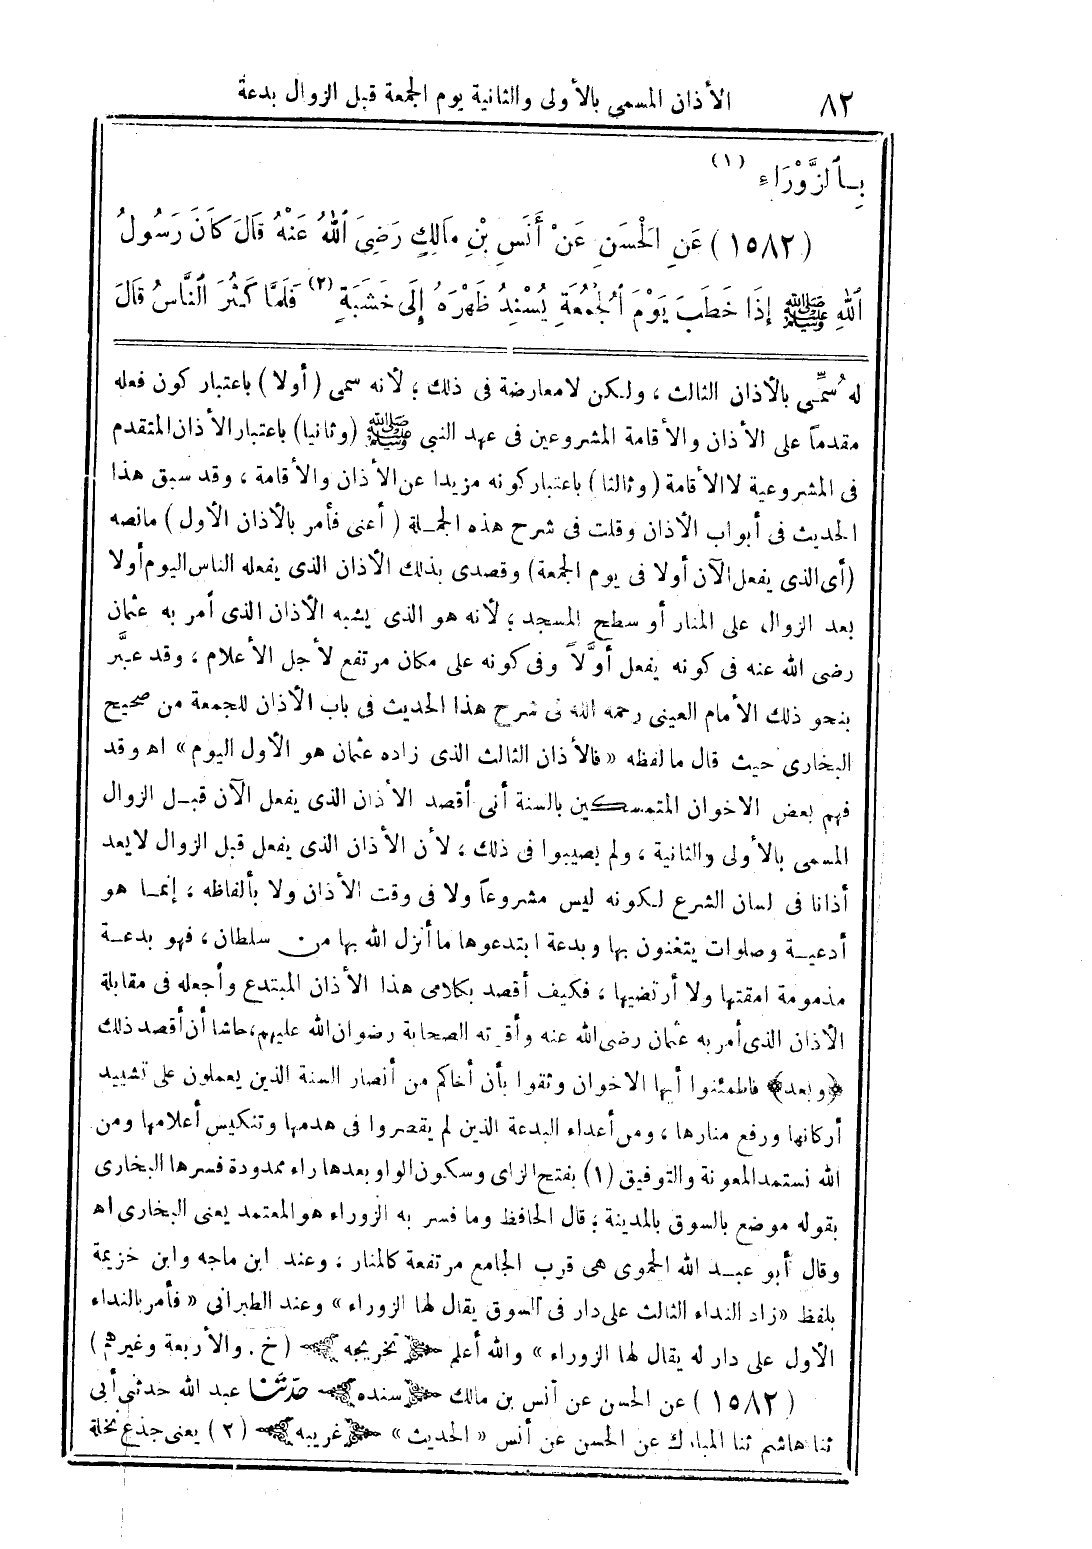 ٨٢ الأذان المسمى بالأولى والثانية يوم الجمعة قبل الزوال بدعة
بِـالزَّوْرَاءِ (١)
(١٥٨٢) عَنِ الْحَسَنِ عَنْ أَنَسِ بْنِ مَالِكٍ رَضِيَ اللهُ عَنْهُ قَالَ كَانَ رَسُولُ
اللهِ ﷺ إِذَا خَطَبَ يَوْمَ الْجُمُعَةِ يُسْنِدُ ظَهْرَهُ إِلَى خَشَبَةٍ (٢) فَلَمَّا كَثُرَ النَّاسُ قَالَ
له سُمِّى بالأذان الثالث ، ولكن لا معارضة فى ذلك ؛ لأنه سمى (أولا) باعتبار كون فعله
مقدماً على الأذان والأقامة المشروعين فى عهد النبي ﷺ (وثانيا) باعتبار الأذان المتقدم
فى المشروعية لا الأقامة (وثالثا) باعتبار كونه مزيدا عن الأذان والأقامة ، وقد سبق هذا
الحديث فى أبواب الأذان وقلت فى شرح هذه الجمـلة (أعنى فأمر بالأذان الأول) مانصه
(أى الذى يفعل الآن أولا فى يوم الجمعة) وقصدى بذلك الأذان الذى يفعله الناس اليوم أولا
بعد الزوال على المنار أو سطح المسجد ؛ لأنه هو الذى يشبه الأذان الذى أمر به عثمان
رضى الله عنه فى كونه يفعل أوَّلاً وفى كونه على مكان مرتفع لأجل الأعلام ، وقد عبَّر
بنحو ذلك الأمام العينى رحمه الله فى شرح هذا الحديث فى باب الأذان للجمعة من صحيح
البخارى حيث قال مالفظه «فالأذان الثالث الذى زاده عثمان هو الأول اليوم» اهـ وقد
فهم بعض الاخوان المتمسكين بالسنة أنى أقصد الأذان الذى يفعل الآن قبـل الزوال
المسمى بالأولى والثانية ، ولم يصيبوا فى ذلك ، لأن الأذان الذى يفعل قبل الزوال لايعد
أذانا فى لسان الشرع لكونه ليس مشروعاً ولا فى وقت الأذان ولا بألفاظه ، إنمـا هو
أدعيـة وصلوات يتغنون بها وبدعة ابتدعوها ما أنزل الله بها من سلطان ، فهو بدعـة
مذمومة امقتها ولا أرتضيها ، فكيف أقصد بكلامى هذا الأذان المبتدع وأجعله فى مقابلة
الأذان الذى أمر به عثمان رضى الله عنه وأقرته الصحابة رضوان الله عليهم، حاشا أن أقصد ذلك
﴿وبعد﴾ فاطمئنوا أيها الاخوان وثقوا بأن أخاكم من أنصار السنة الذين يعملون على تشييد
أركانها ورفع منارها ، ومن أعداء البدعة الذين لم يقصروا فى هدمها وتنكيس أعلامها ومن
الله نستمد المعونة والتوفيق (١) بفتح الزاى وسكون الواو بعدها راء ممدودة فسرها البخارى
بقوله موضع بالسوق بالمدينة ؛ قال الحافظ وما فسر به الزوراء هو المعتمد يعنى البخارى اهـ
وقال أبو عبـد الله الحموى هى قرب الجامع مرتفعة كالمنار ، وعند ابن ماجه وابن خزيمة
بلفظ «زاد النداء الثالث على دار فى السوق يقال لها الزوراء» وعند الطبرانى «فأمر بالنداء
الأول على دار له يقال لها الزوراء» والله أعلم ﴿تخريجه﴾ (خ . والأربعة وغيرهم)
(١٥٨٢) عن الحسن عن أنس بن مالك ﴿سنده﴾ حدثنا عبد الله حدثنى أبى
ثنا هاشم ثنا المبارك عن الحسن عن أنس «الحديث» ﴿غريبه﴾ (٢) يعنى جذع نخلة